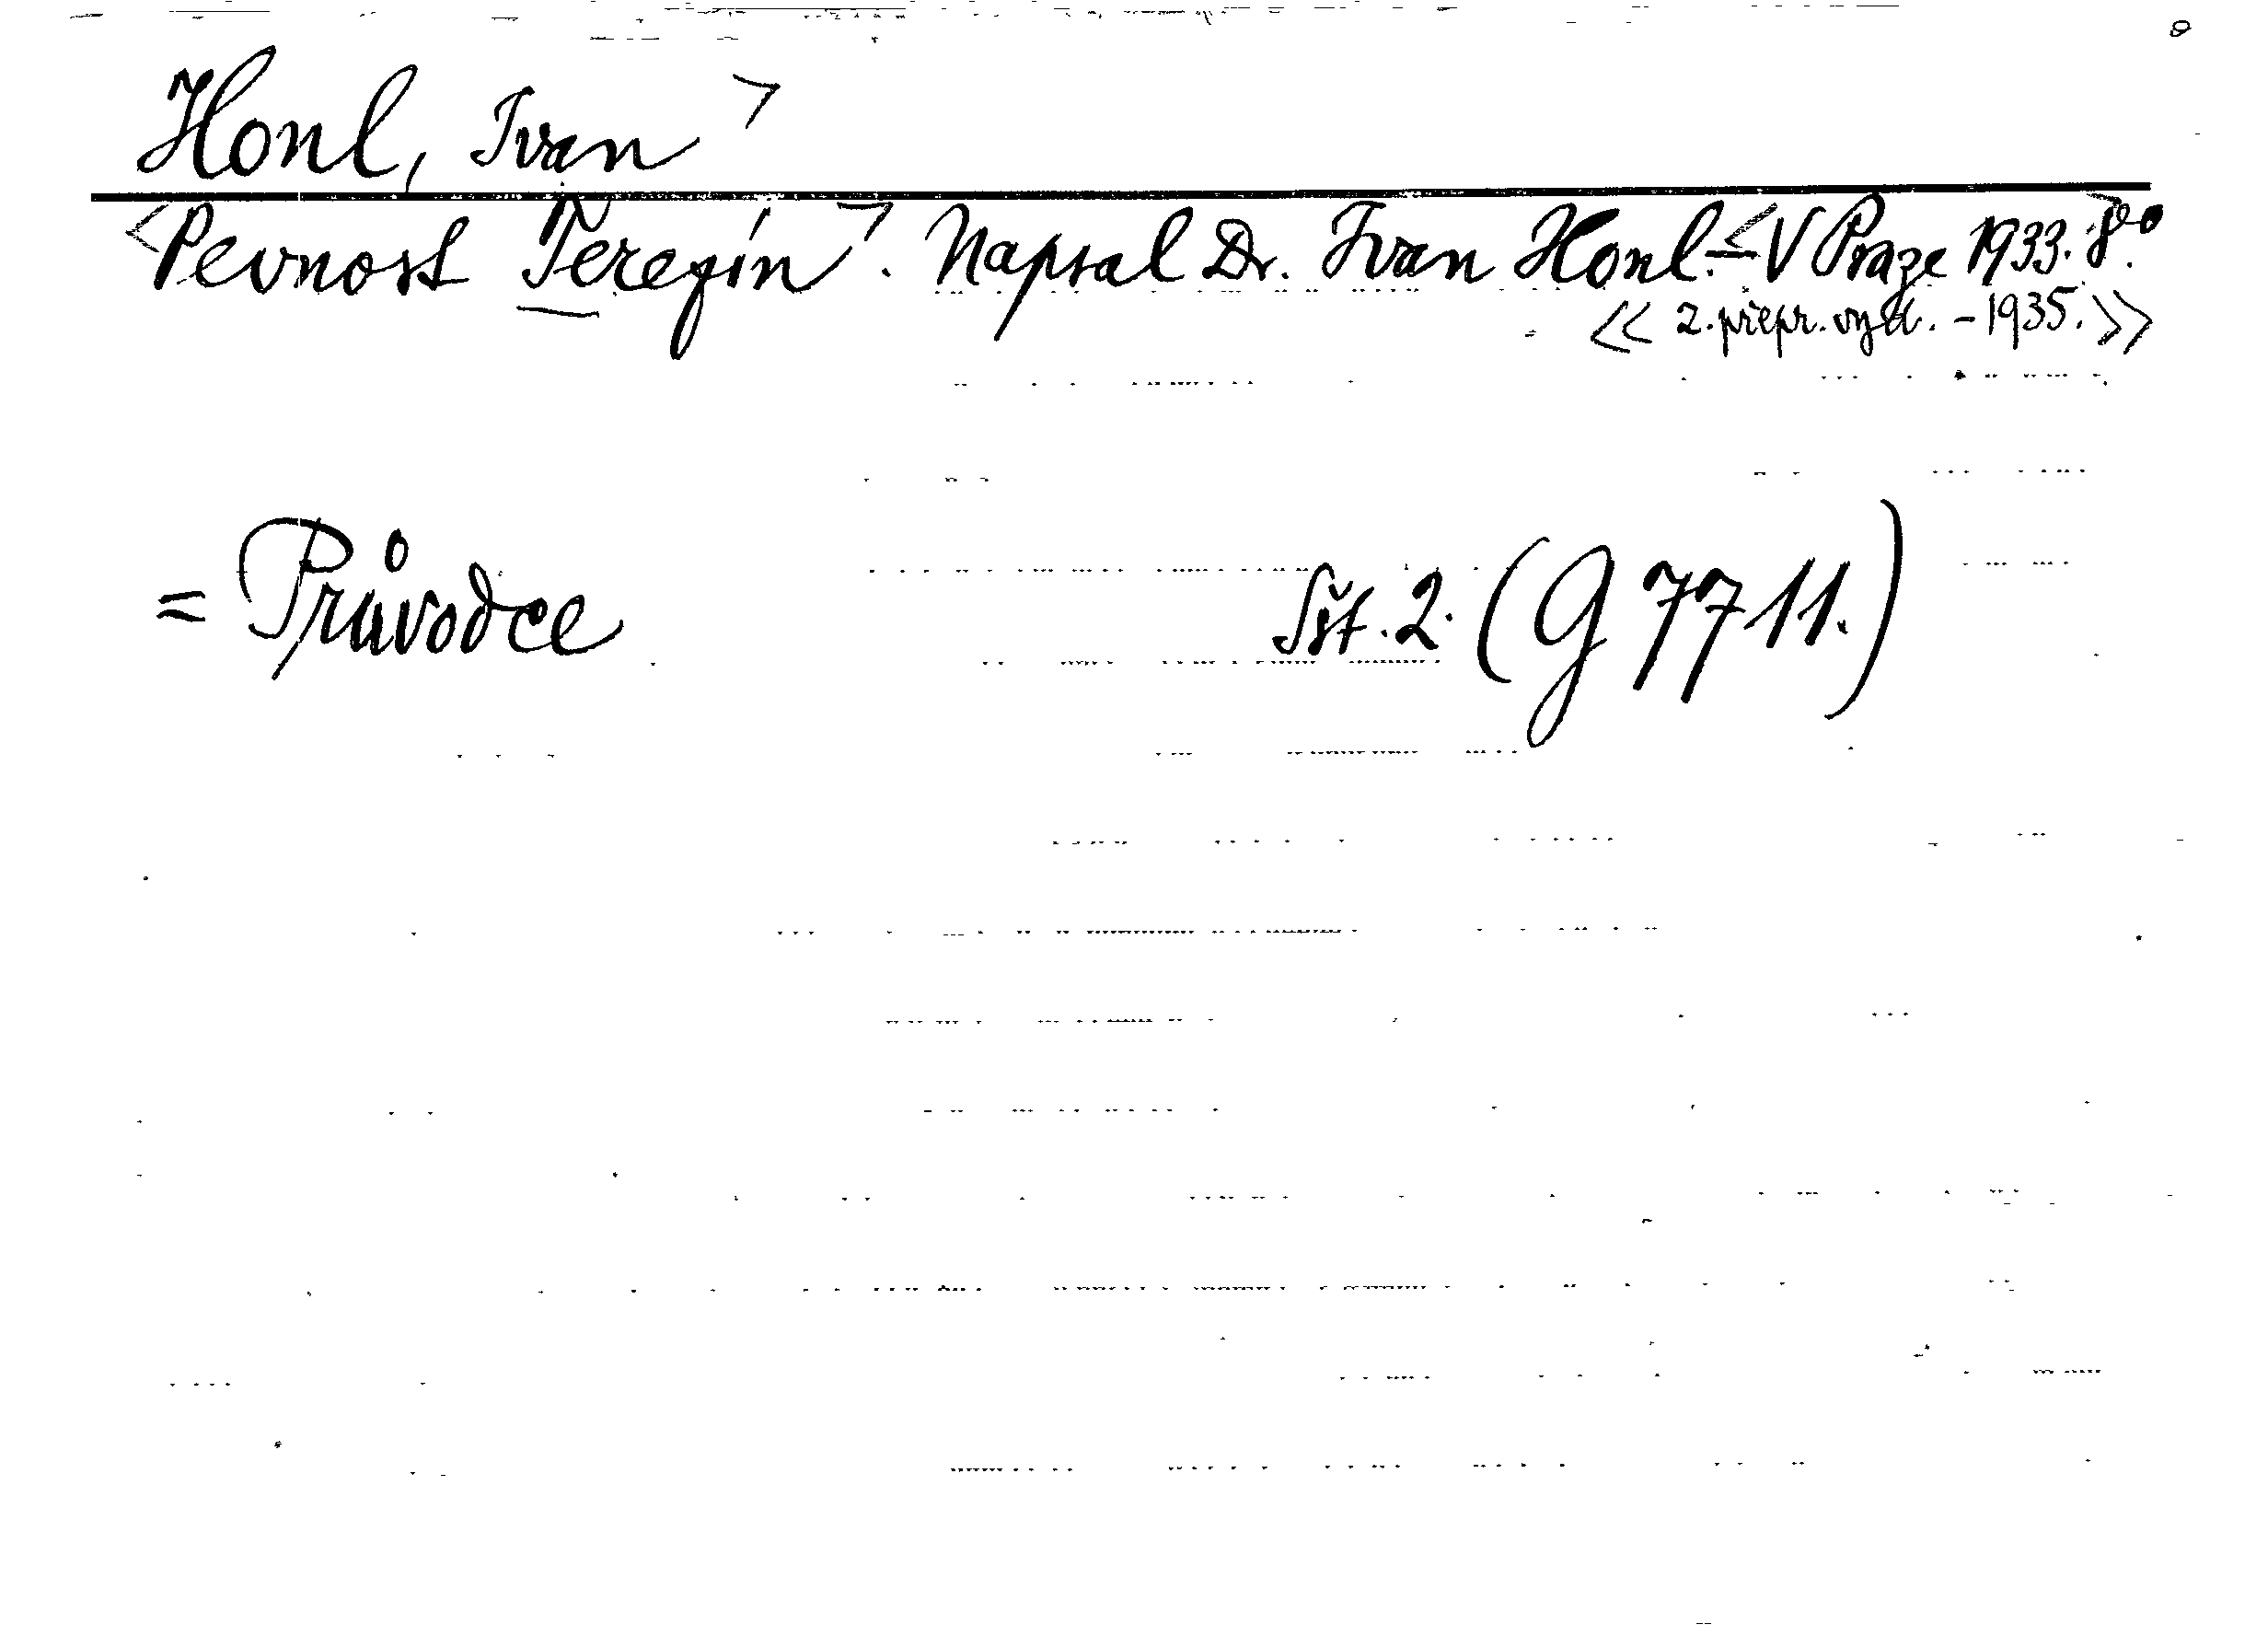 Honl, Ivan >
<Pevnost Terezín>. Napsal Dr. Ivan Honl. – <V Praze 1933.> 8°.
<< 2. přepr. vyd. – 1935. >>
= Průvodce Sšt. 2. (G 7711.)